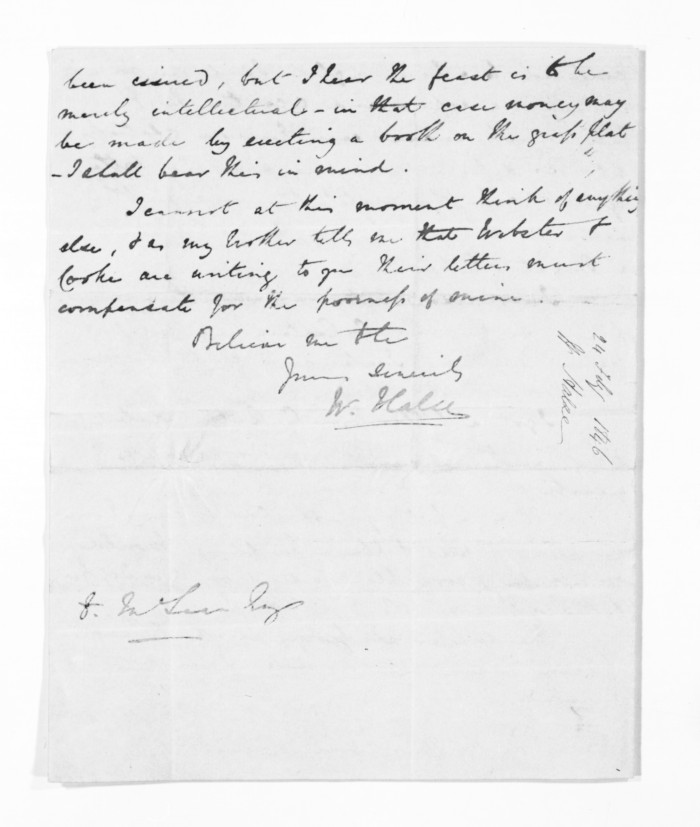 been issued, but I hear the feast is to be
merely intellectual - in that case money may
be made by erecting a booth on the grass plat
- I shall bear this in mind.
I cannot at this moment think of anything
else, & as my brother tells me that Webster &
Cooke are writing to you their letters must
compensate for the poorness of mine.
Believe me
Yours Sincerely
W. Halse
24 July 1846
W. Halse
Esq